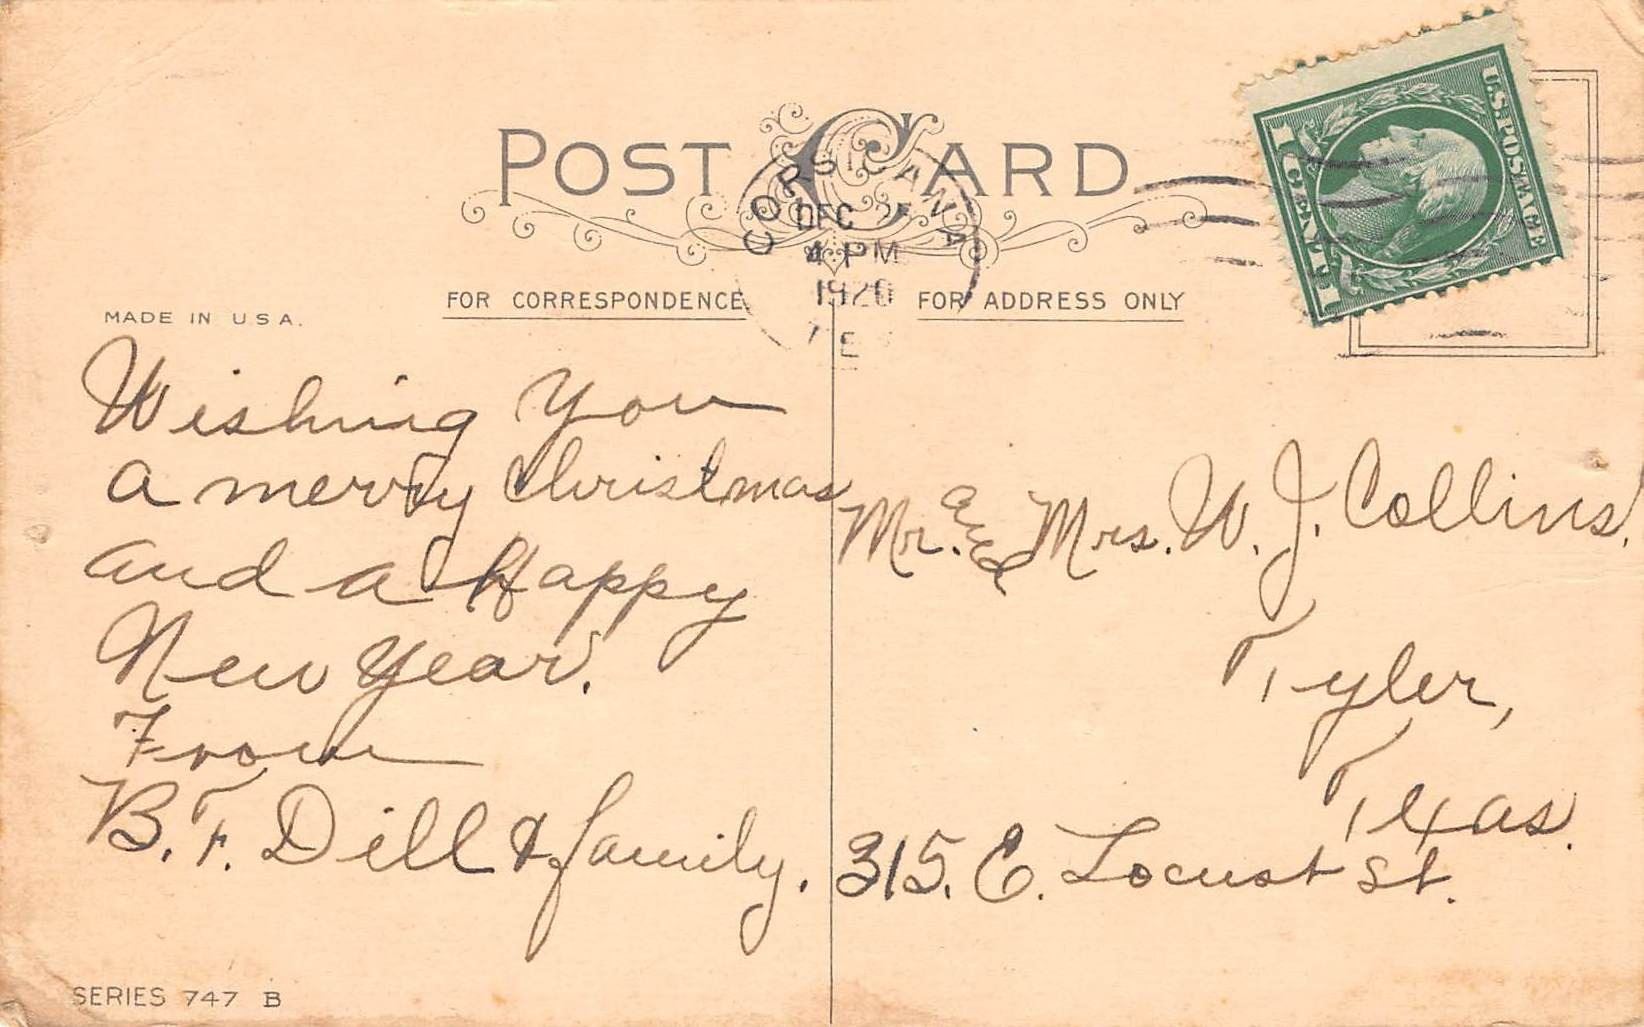 POST CARD
CORSICANA
DEC
4 PM
1920
U.S. POSTAGE
1 CENT 1
FOR CORRESPONDENCE
FOR ADDRESS ONLY
MADE IN U S A.
Wishing you
a merry Christmas
and a Happy
New Year.
From
B. F. Dill & family.
Mr. and Mrs. W. J. Collins.
Tyler,
Texas.
315. E. Locust St.
SERIES 747 B